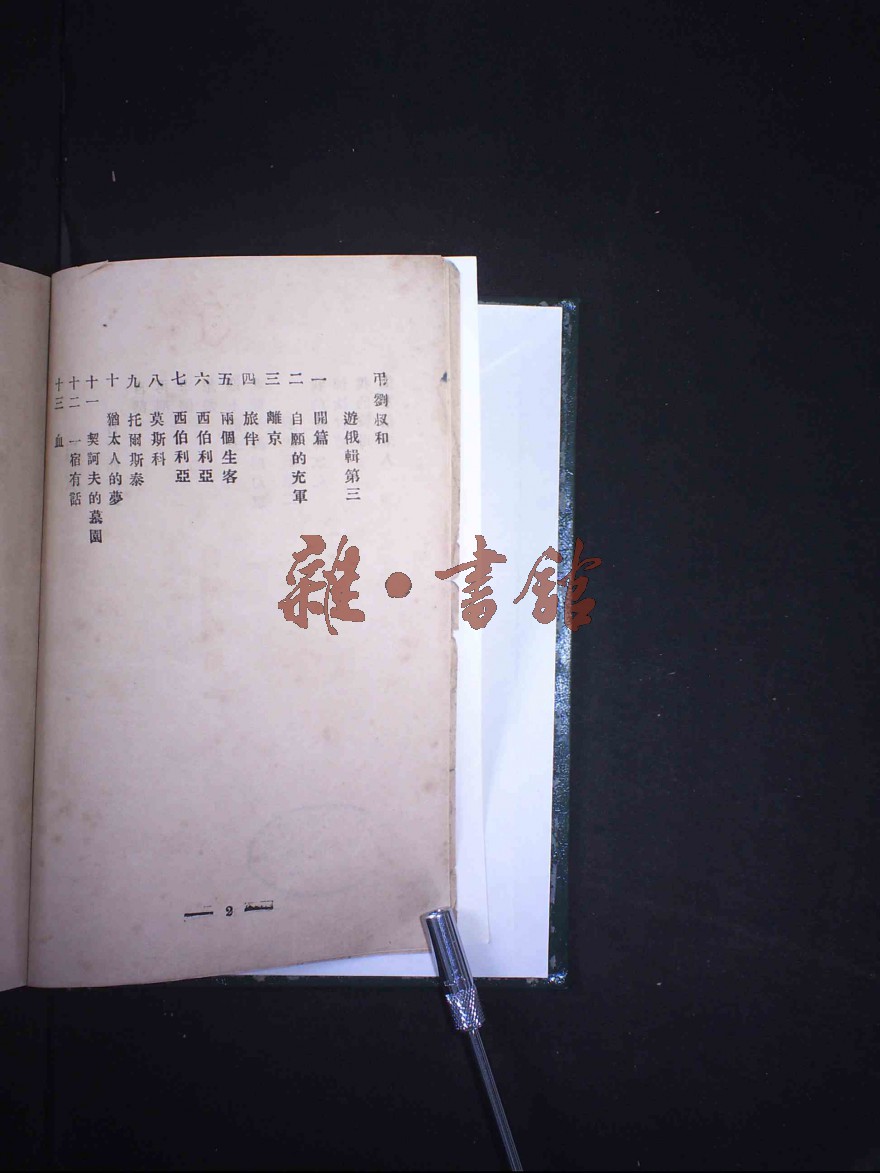 弔劉叔和
遊俄輯第三
一 開篇
二 自願的充軍
三 離京
四 旅伴
五 兩個生客
六 西伯利亞
七 西伯利亞
八 莫斯科
九 托爾斯泰
十 猶太人的夢
十一 契訶夫的墓園
十二 一宿有話
十三 血
2
雜·書館